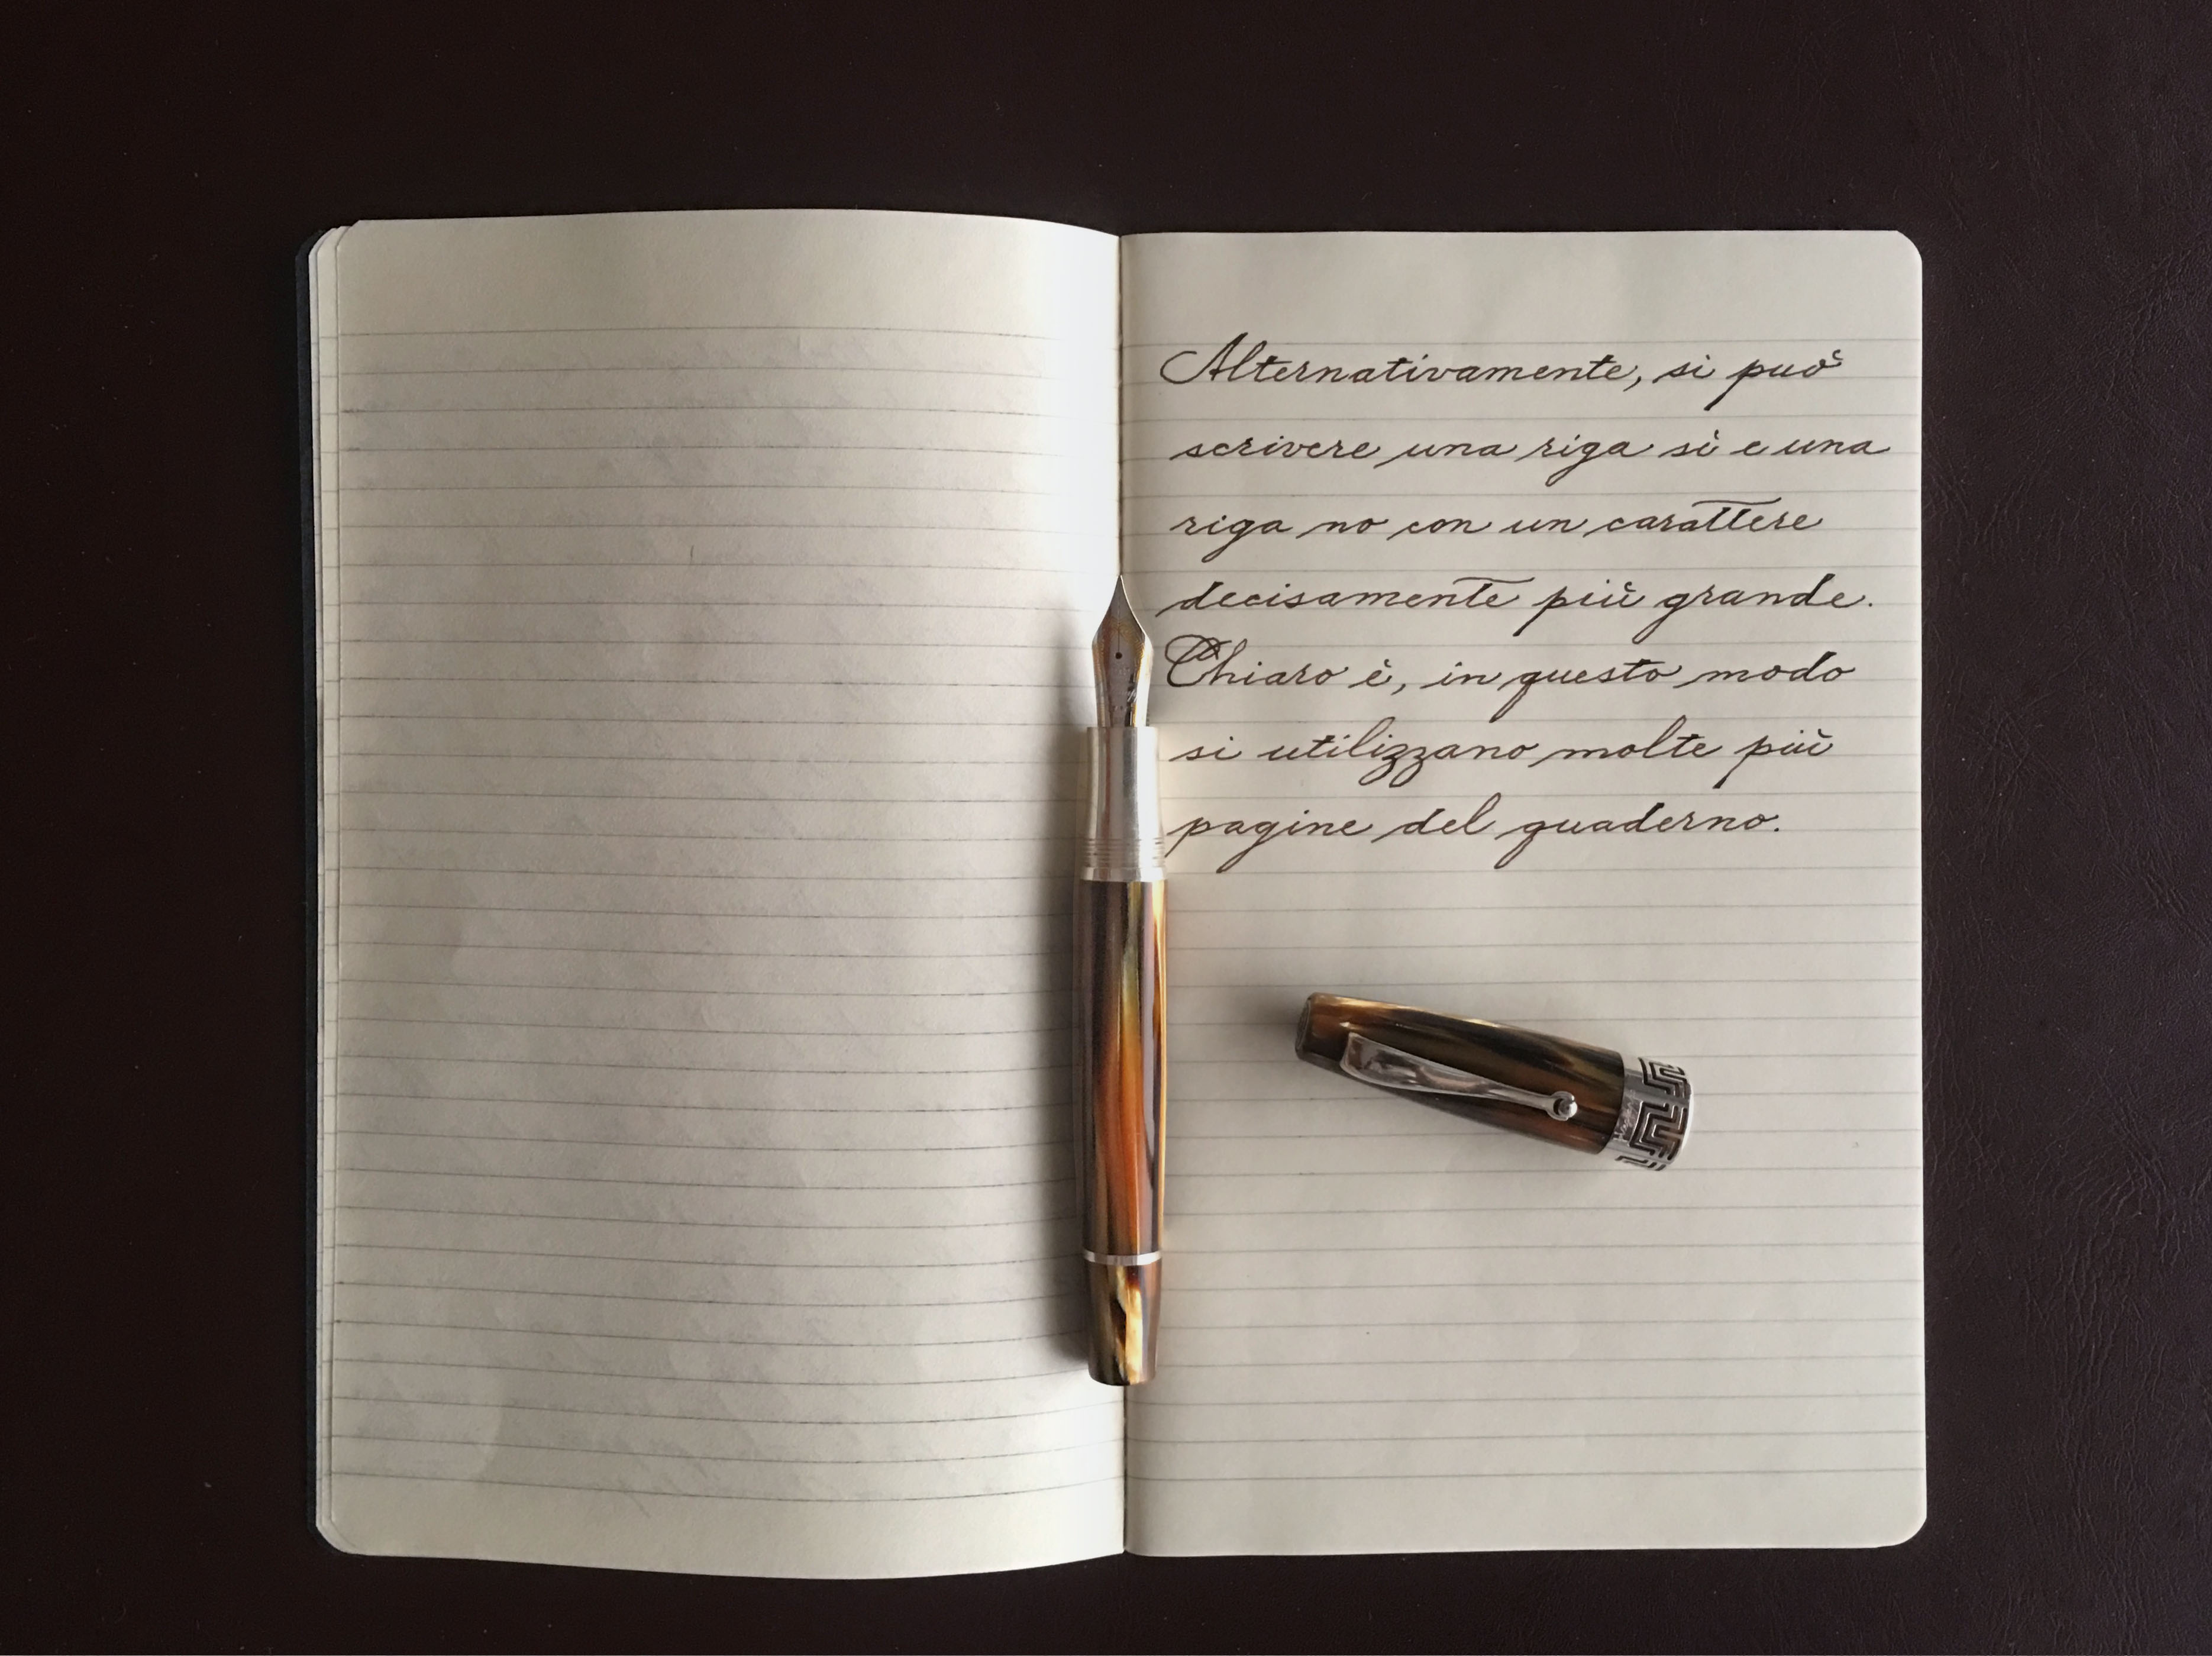 Alternativamente, si può
scrivere una riga sì e una
riga no con un carattere
decisamente più grande.
Chiaro è, in questo modo
si utilizzano molte più
pagine del quaderno.